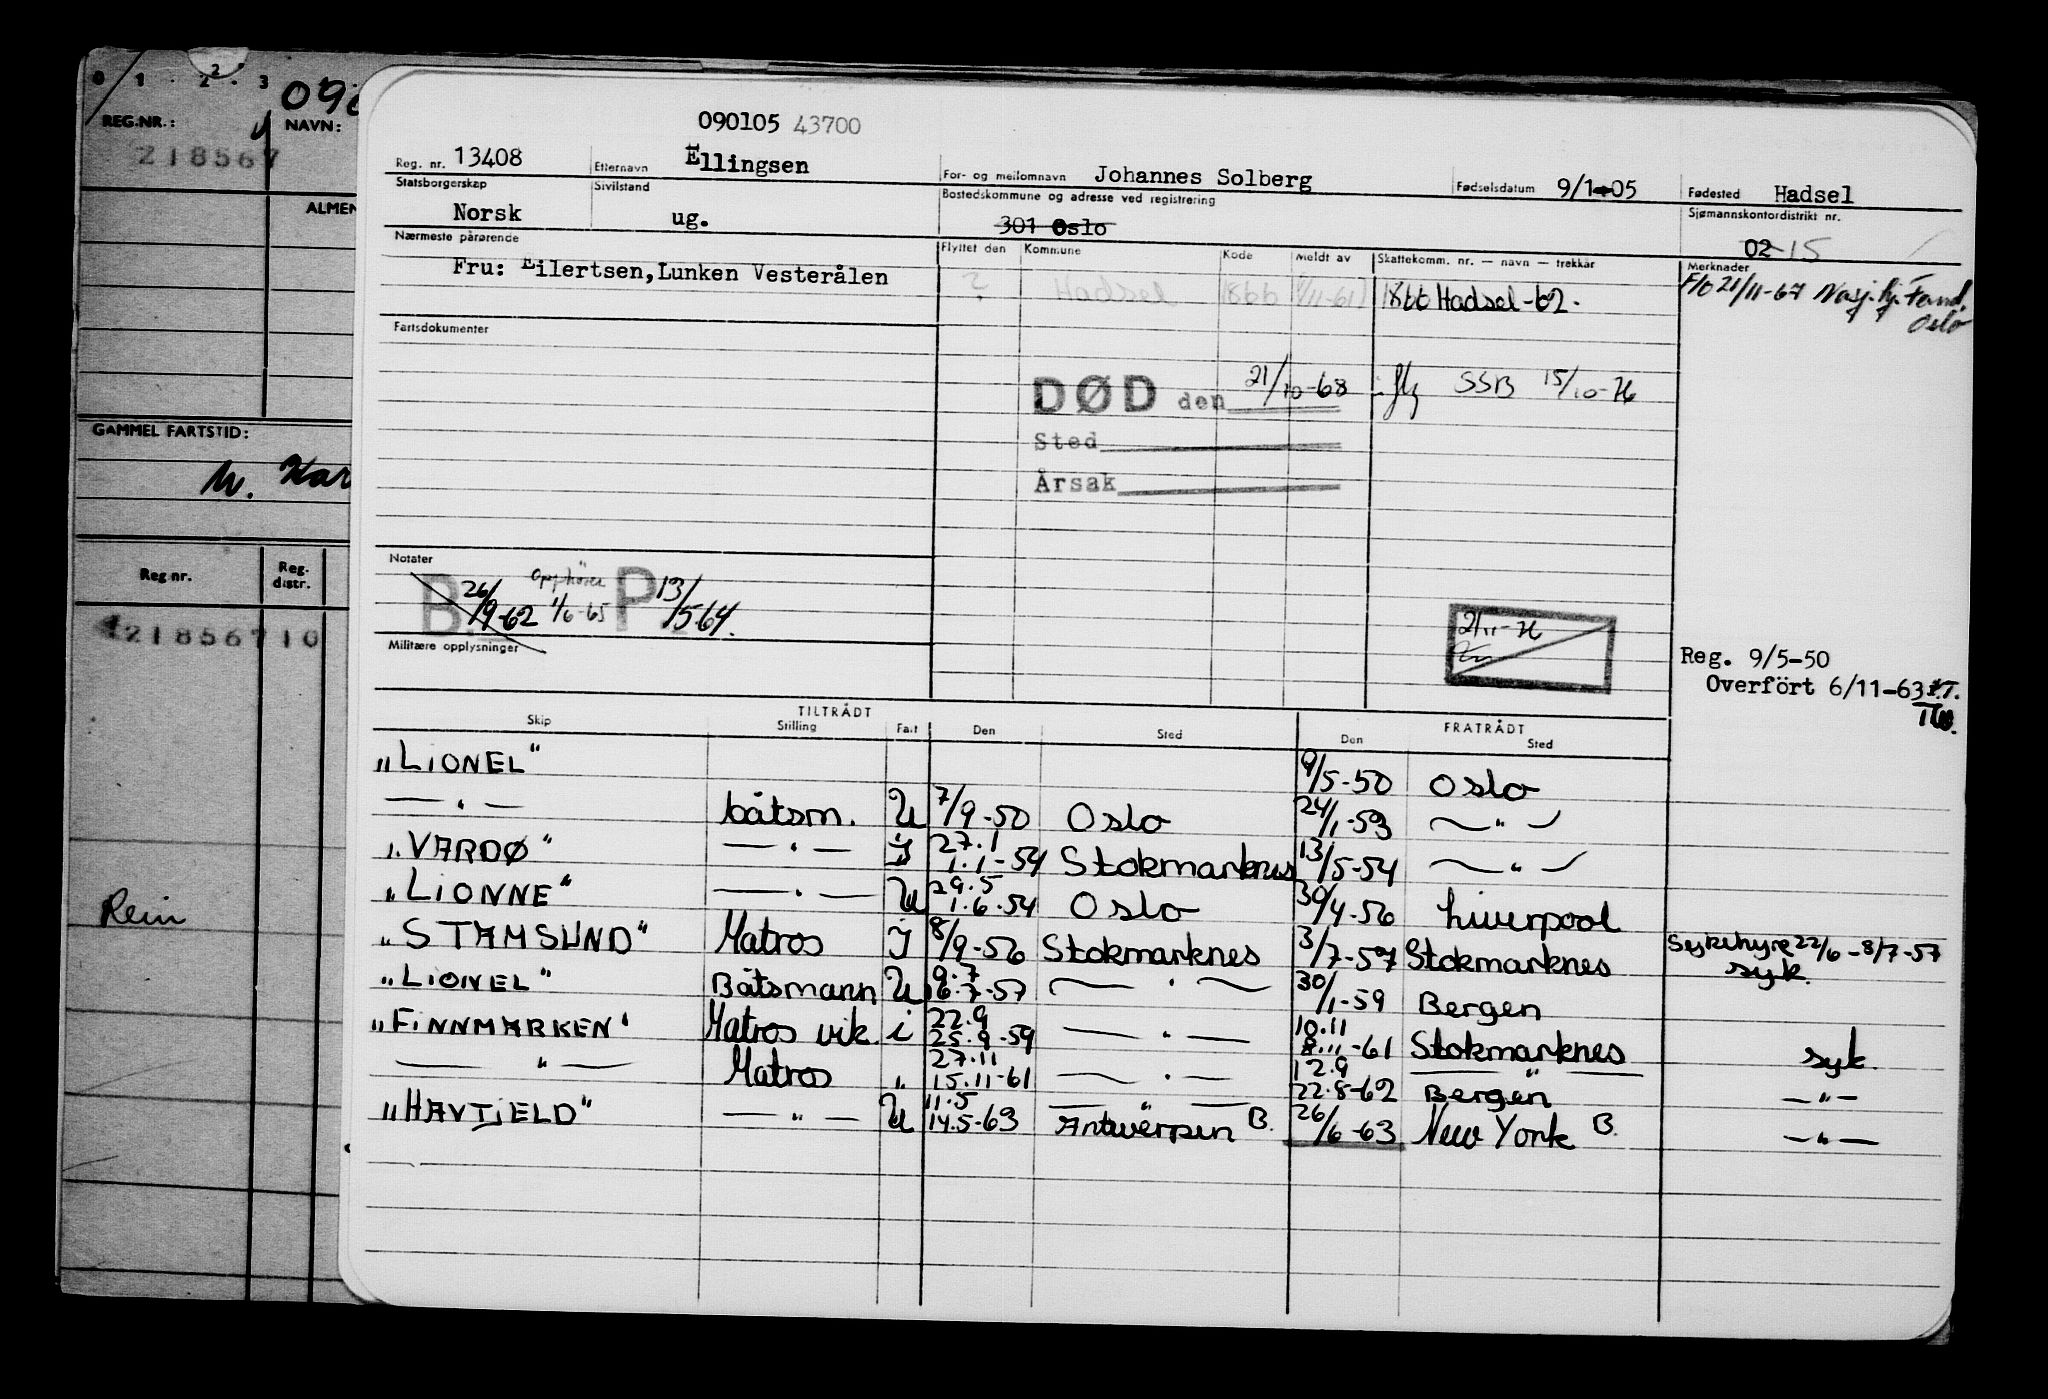 0 1 2 3
2
090
REG.NR.:
NAVN:
218567
ALMEN
GAMMEL FARTSTID:
Reg nr.
Reg. distr.
21856710
Rein
090105 43700
Reg. nr. 13408
Etternavn Ellingsen
For- og mellomnavn Johannes Solberg
Fødselsdatum 9/1-05
Fødested Hadsel
Statsborgerskap
Norsk
Sivilstand
ug.
Bostedskommune og adresse ved registrering
301 Oslo
Sjømannskontordistrikt nr.
02 15
Nærmeste pårørende
Fru: Eilertsen, Lunken Vesterålen
Flyttet den Kommune Kode Meldt av Skattekomm. nr. — navn — trekkår
? Hadsel 1866 /11-61 1866 Hadsel -62.
Merknader
F/o 21/11-67 Oslo
Fartsdokumenter
DØD den 21/10-68 SSB 15/10-76
Sted
Årsak
Notater
B. 26/9-62 Opphører 1/6-65 P 13/5-64.
Militære opplysninger
21/11-76
Reg. 9/5-50
Overført 6/11-63 I.T.
TILTRÅDT FRATRÅDT
Skip Stilling Fart Den Sted Den Sted
„LIONEL“ 9/5-50 Oslo
—„— båtsm. U 7/9-50 Oslo 24/1-53 —„—
„VARDØ“ —„— I 27.1 1.1-54 Stokmarknes 13/5-54 —„—
„LIONNE“ —„— U 29.5 1.6-54 Oslo 30/4-56 Liverpool
„STAMSUND“ Matros I 8/9-56 Stokmarknes 3/7-57 Stokmarknes Sykehyre 22/6-8/7-57 syk.
„LIONEL“ Båtsmann U 9.7 16.7-57 —„— 30/1-59 Bergen
„FINNMARKEN“ Matros vik. i 22.9 25.9-59 —„— 10.11 8.11-61 Stokmarknes syk.
—„— Matros „ 27.11 15.11-61 —„— 12.9 22.8-62 —„— Bergen —„—
„HAVTJELD“ —„— U 11.5 14.5-63 —„— Antwerpen B. 26/6-63 New York B. —„—